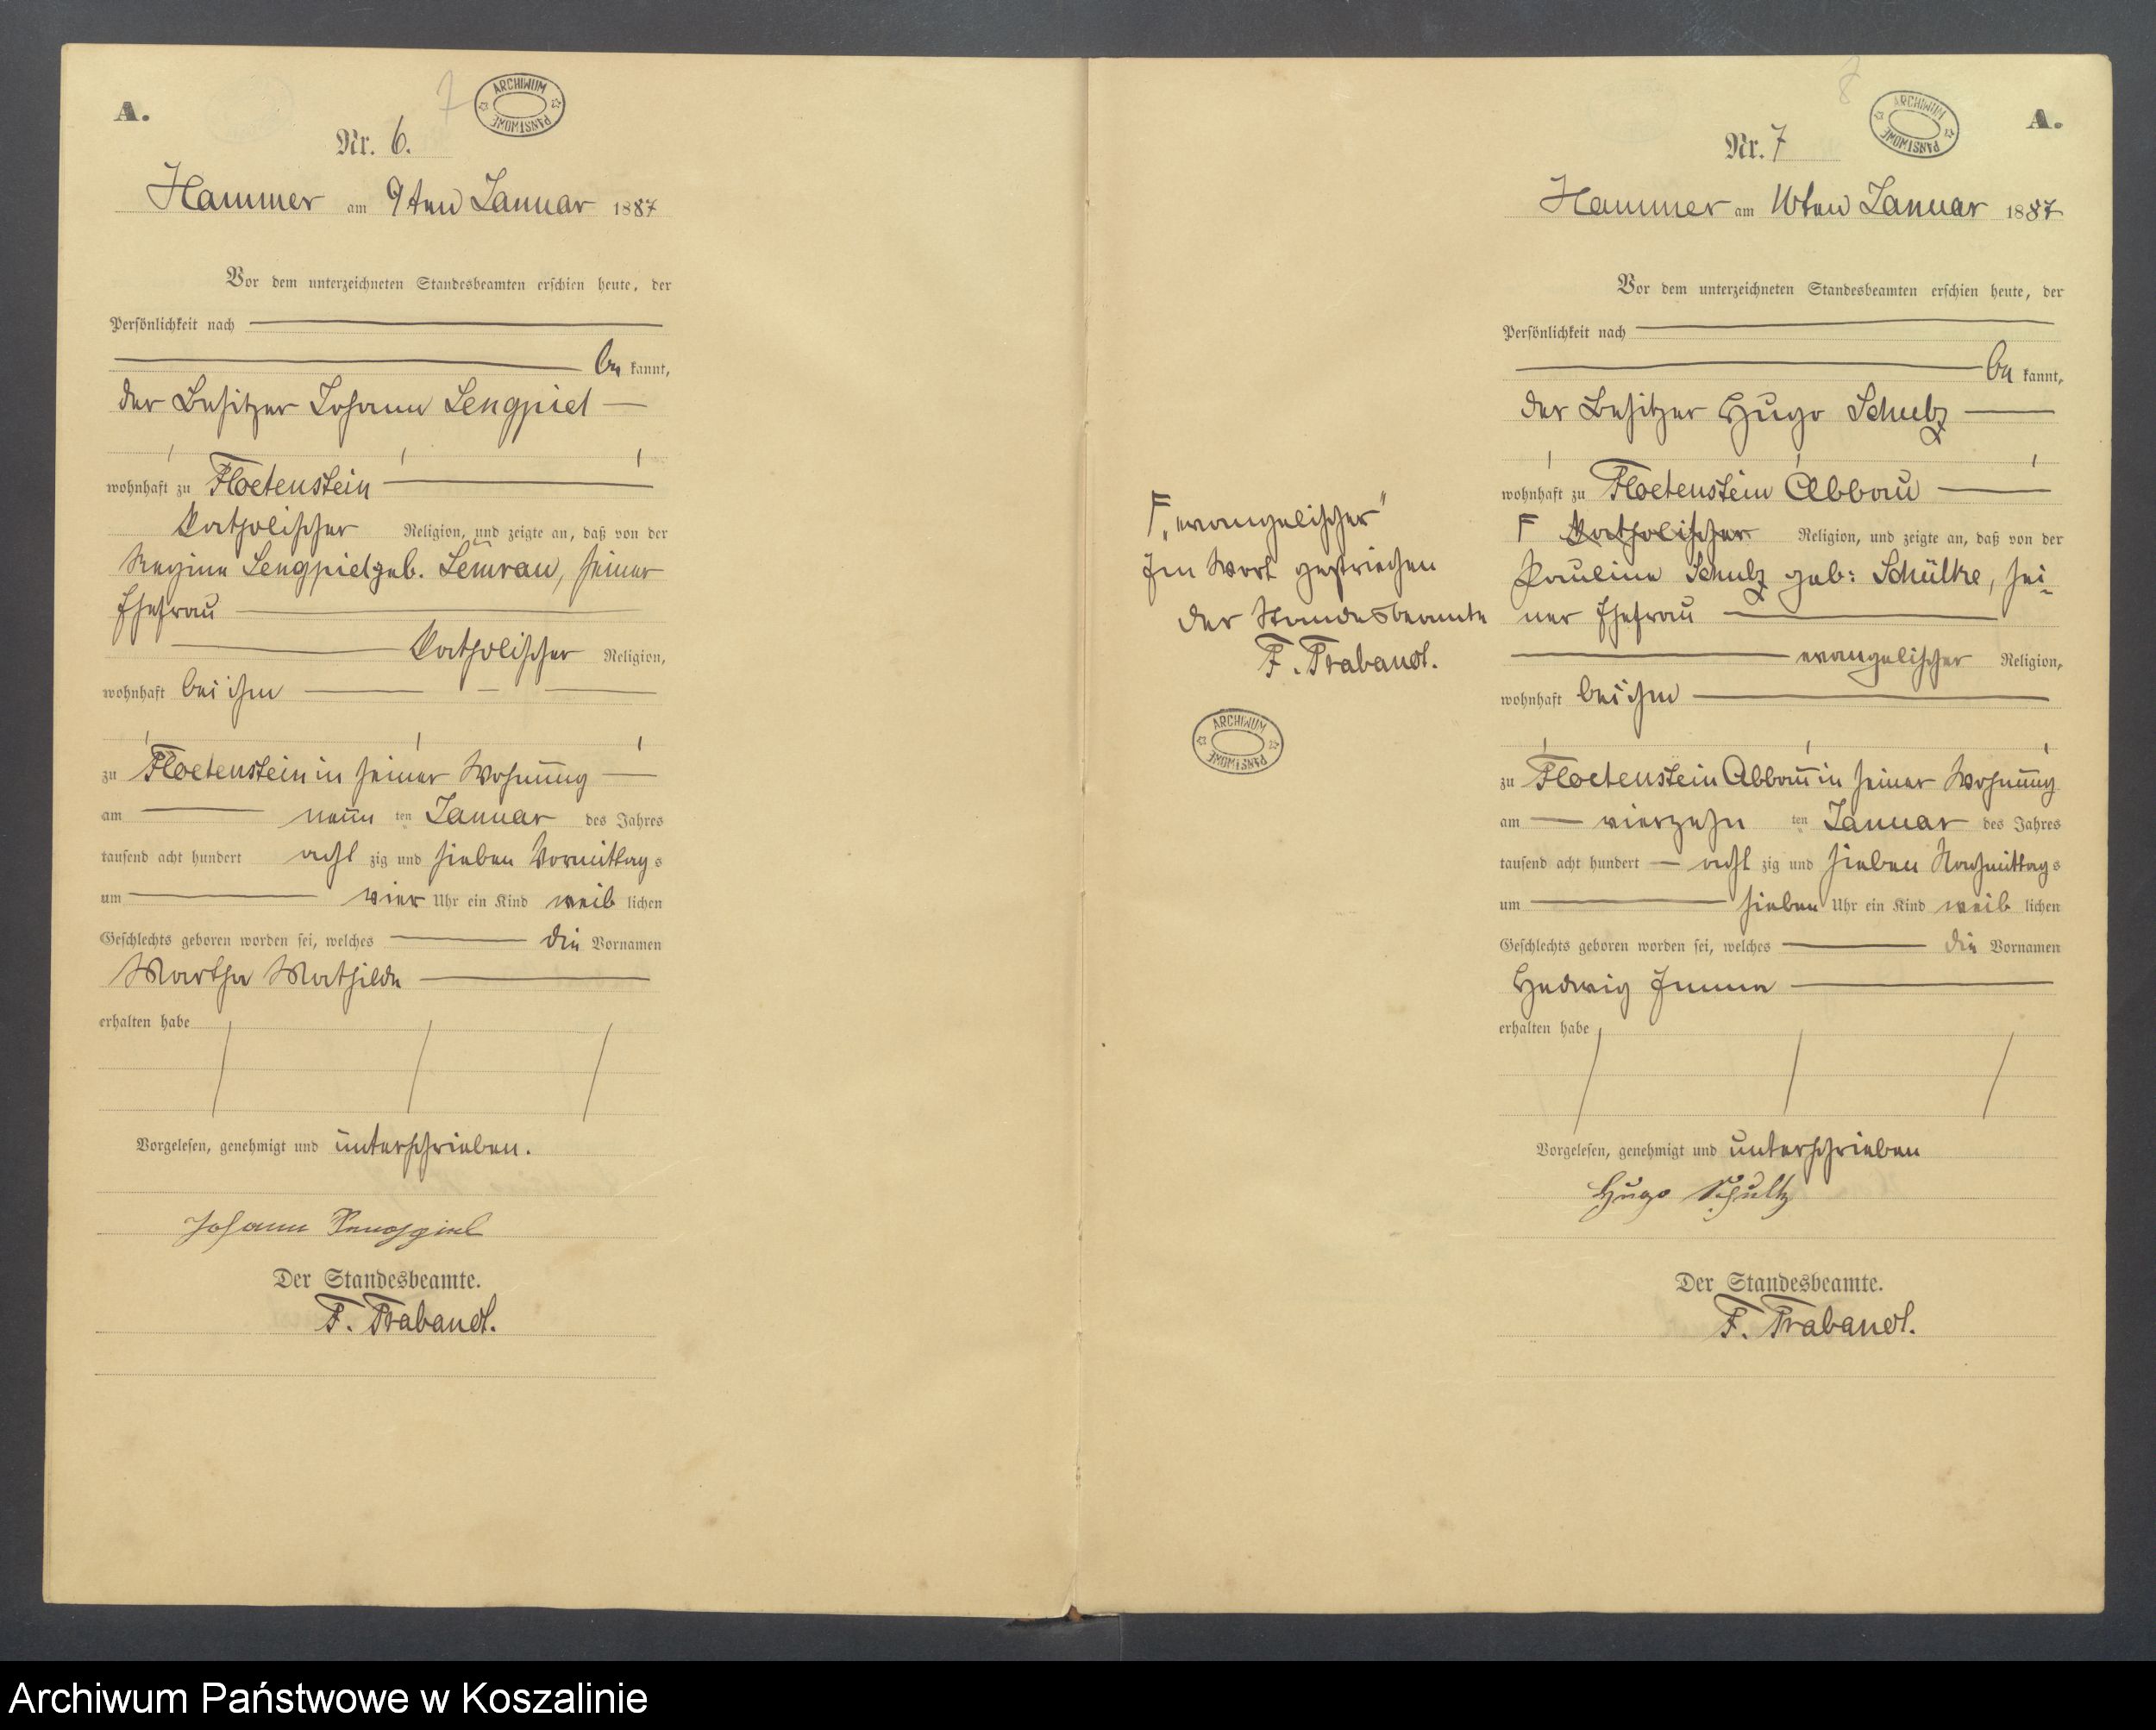 7
ARCHIWUM PAŃSTWOWE
A.
Nr. 6.
Hammer am 9ten Januar 1887
Vor dem unterzeichneten Standesbeamten erschien heute, der
Persönlichkeit nach
be kannt,
der Besitzer Johann Lengpiel
wohnhaft zu Floetenstein
katholischer Religion, und zeigte an, daß von der
Regine Lengpiel geb. Semrau, seiner
Ehefrau
katholischer Religion,
wohnhaft bei ihm
zu Floetenstein in seiner Wohnung
am neun ten Januar des Jahres
tausend acht hundert acht zig und sieben Vormittags
um vier Uhr ein Kind weib lichen
Geschlechts geboren worden sei, welches die Vornamen
Martha Mathilde
erhalten habe
Vorgelesen, genehmigt und unterschrieben.
Johann Lengpiel
Der Standesbeamte.
F. Trabandt.
8
ARCHIWUM PAŃSTWOWE
A.
Nr. 7
Hammer am 16ten Januar 1887
Vor dem unterzeichneten Standesbeamten erschien heute, der
Persönlichkeit nach
be kannt,
der Besitzer Hugo Schulz
wohnhaft zu Floetenstein Abbau
F katholischer Religion, und zeigte an, daß von der
Pauline Schulz geb: Schülke, sei-
ner Ehefrau
evangelischer Religion,
wohnhaft bei ihm
zu Floetenstein Abbau in seiner Wohnung
am vierzehn ten Januar des Jahres
tausend acht hundert acht zig und sieben Nachmittags
um sieben Uhr ein Kind weib lichen
Geschlechts geboren worden sei, welches die Vornamen
Hedwig Emma
erhalten habe
Vorgelesen, genehmigt und unterschrieben
Hugo Schultz
Der Standesbeamte.
F. Trabandt.
F „evangelischer"
Ein Wort gestrichen
Der Standesbeamte
F. Trabandt.
ARCHIWUM PAŃSTWOWE
Archiwum Państwowe w Koszalinie